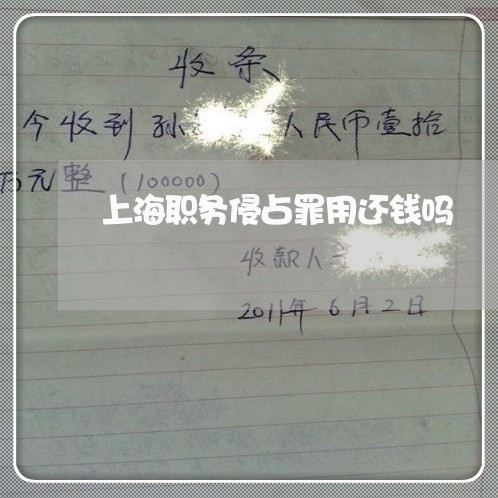 收条
今收到孙 人民币壹拾
万元整(100000)
上海职务侵占罪用还钱吗
收款人
2011年6月2日